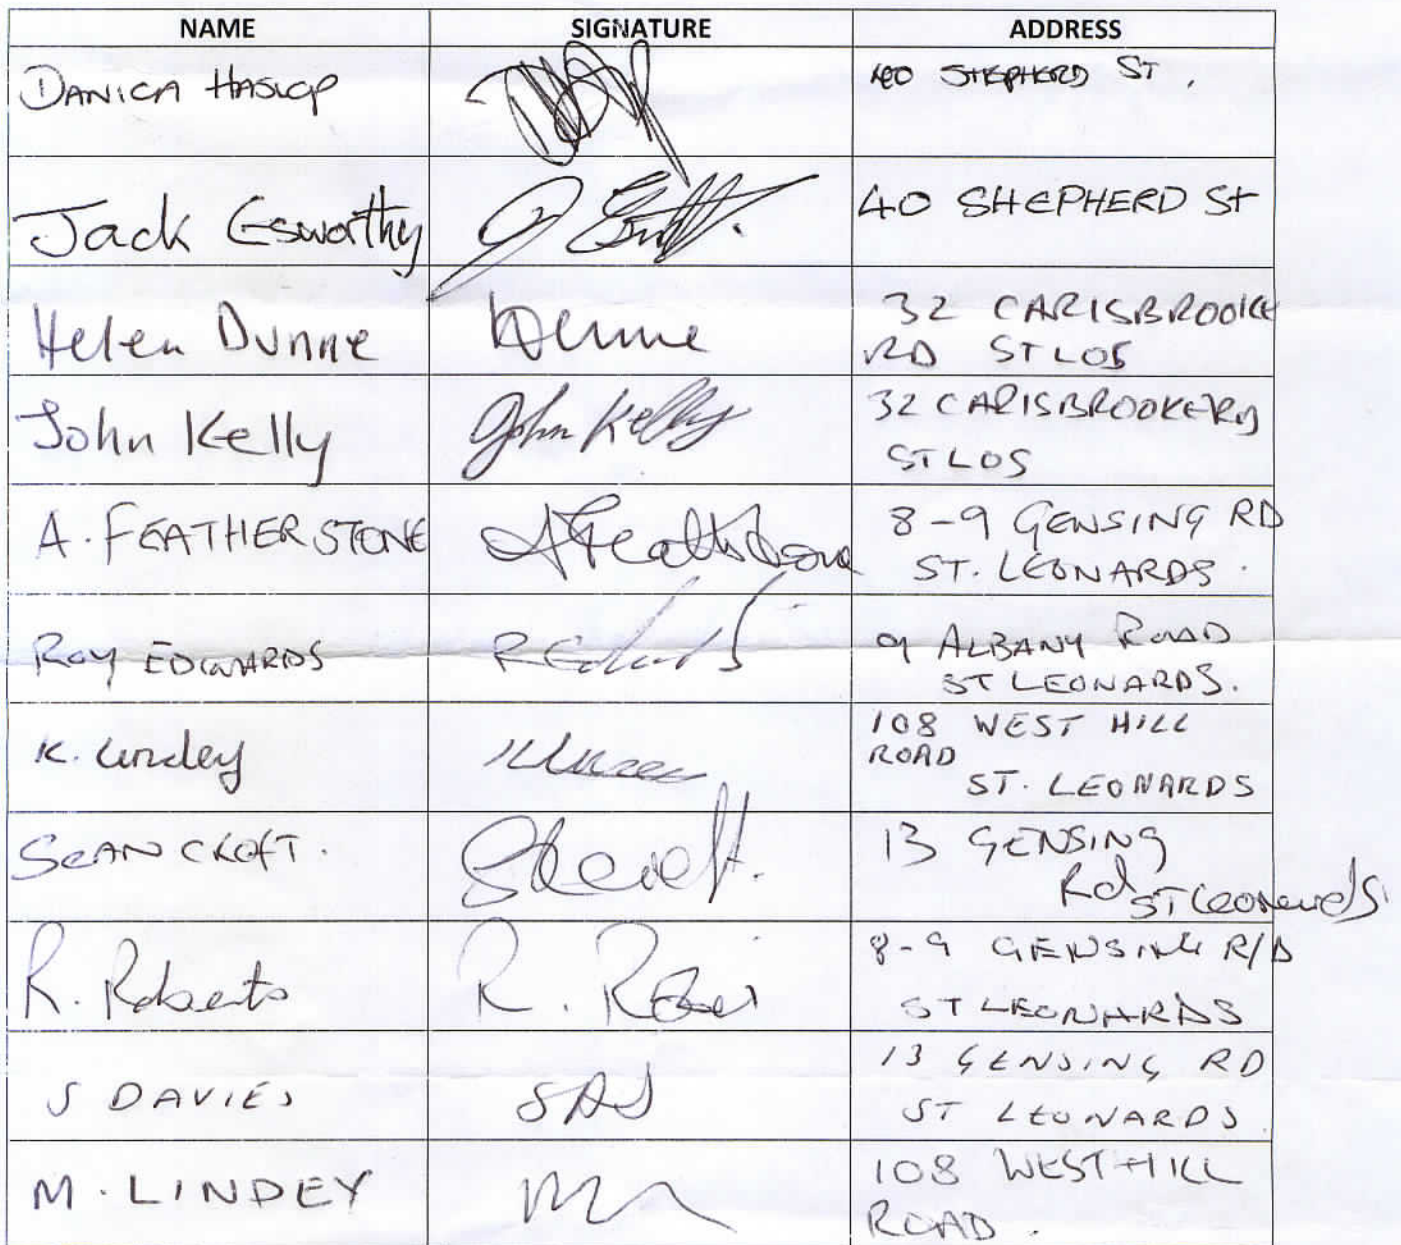 NAME SIGNATURE ADDRESS
DANICA HASLOP 40 SHEPHERD ST.
Jack Esworthy 40 SHEPHERD St
Helen Dunne Dunne 32 CARISBROOKE
RD ST LOS
John Kelly John Kelly 32 CARISBROOKE RD
ST LOS
A. FEATHERSTONE AFeatherstone 8-9 GENSING RD
ST. LEONARDS.
ROY EDWARDS REdwards 9 ALBANY ROAD
ST LEONARDS.
K. Lindey 108 WEST HILL
ROAD
ST. LEONARDS
SEAN CROFT. SCroft. 13 GENSING
Rd
ST Leonards
R. Roberts R. 8-9 GENSING R/D
ST LEONARDS
S DAVIES 13 GENSING RD
ST LEONARDS
M. LINDEY 108 WEST HILL
ROAD.